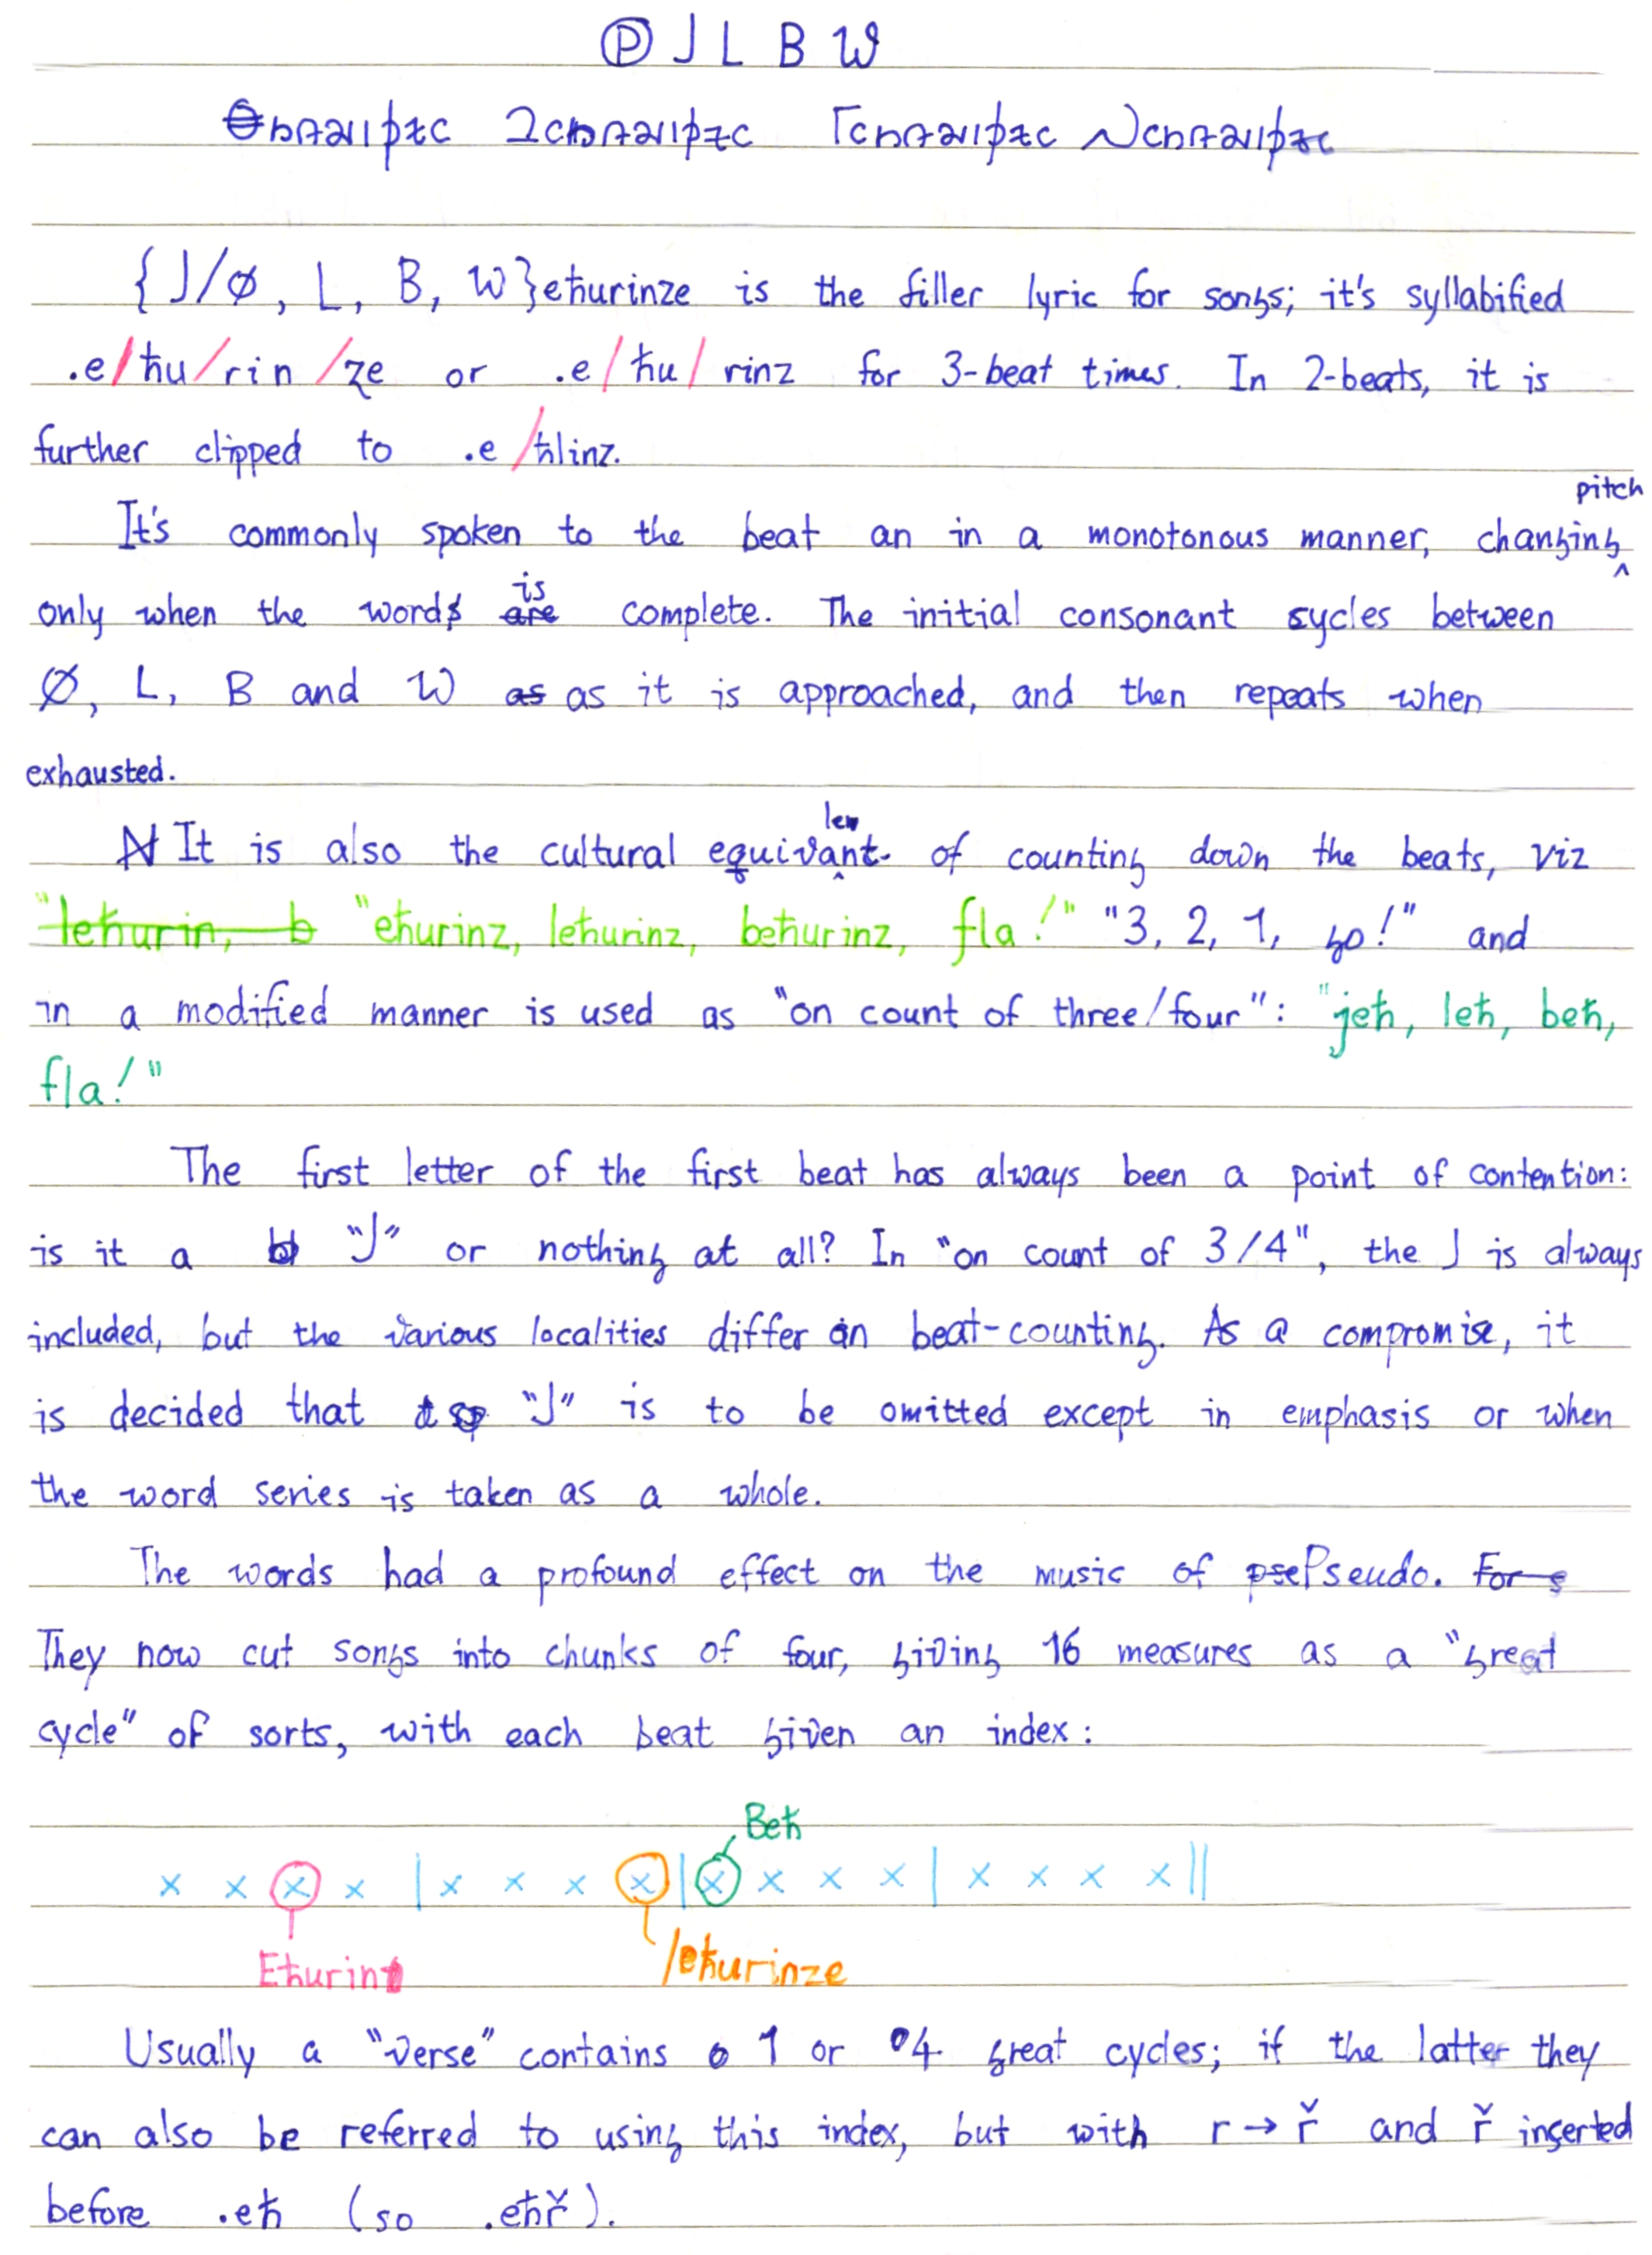 Ⓟ J L B W
{J/ø, L, B, W}eħurinze is the filler lyric for songs; it's syllabified
.e/ħu/rin/ze or .e/ħu/rinz for 3-beat times. In 2-beats, it is
further clipped to .e/ħlinz.
pitch
It's commonly spoken to the beat an in a monotonous manner, changing
is
only when the words are complete. The initial consonant cycles between
Ø, L, B and W as as it is approached, and then repeats when
exhausted.
len
N It is also the cultural equivant of counting down the beats, viz
"leħurin, b "eħurinz, leħurinz, beħurinz, fla!" "3, 2, 1, go!" and
in a modified manner is used as "on count of three/four": "jeħ, leħ, beħ,
fla!"
The first letter of the first beat has always been a point of contention:
is it a "J" or nothing at all? In "on count of 3/4", the J is always
included, but the various localities differ in beat-counting. As a compromise, it
is decided that "J" is to be omitted except in emphasis or when
the word series is taken as a whole.
The words had a profound effect on the music of psePseudo. For s
They now cut songs into chunks of four, giving 16 measures as a "great
cycle" of sorts, with each beat given an index:
Beħ
x x x x | x x x x | x x x x | x x x x ||
Eħurin leħurinze
Usually a "verse" contains 1 or 4 great cycles; if the latter they
can also be referred to using this index, but with r → ř and ř inserted
before .eħ (so .eħř).